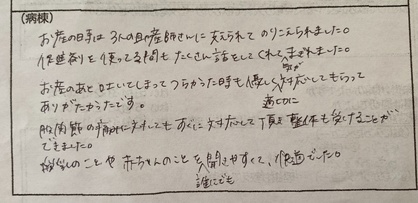 (病棟)
お産の日事は3人の助産師さんに支えられてのりこえられました。
促進剤を使ってる間もたくさん話をしてくれてまぎれました。
気が
お産のあとはいてしまってつらかった時も優しく対応してもらって
ありがたかったです。
適切に
股関節の痛みに対してもすぐに対応して頂き整体も受けることが
できました。
のことや赤ちゃんのことを聞きやすくて、快適でした。
誰にでも